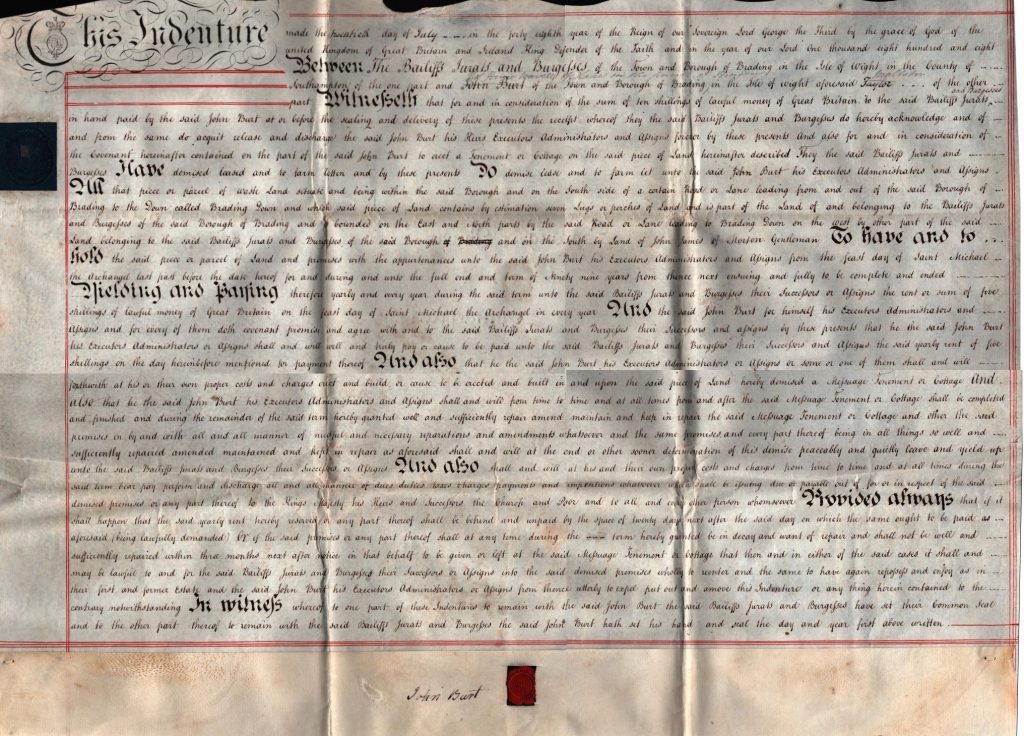 This Indenture made the twentieth day of July in the forty eighth year of the Reign of our Sovereign Lord George the Third by the grace of God of the
united Kingdom of Great Britain and Ireland King Defender of the Faith and in the year of our Lord One thousand eight hundred and eight
Between The Bailiffs Jurats and Burgesses of the Town and Borough of Brading in the Isle of Wight in the County of
Southampton of the one part and John Burt of the Town and Borough of Brading in the Isle of Wight aforesaid Taylor of the other
part Witnesseth that for and in consideration of the sum of ten shillings of lawful money of Great Britain to the said Bailiffs Jurats and Burgesses
in hand paid by the said John Burt at or before the sealing and delivery of these presents the receipt whereof they the said Bailiffs Jurats and Burgesses do hereby acknowledge and of
and from the same do acquit release and discharge the said John Burt his Heirs Executors Administrators and Assigns forever by these presents And also for and in consideration of
the Covenant hereinafter contained on the part of the said John Burt to erect a Tenement or Cottage on the said piece of Land hereinafter described They the said Bailiffs Jurats and
Burgesses Have demised leased and to farm letten and by these presents Do demise lease and to farm let unto the said John Burt his Executors Administrators and Assigns
All that piece or parcel of Waste Land situate and being within the said Borough and on the South side of a certain Road or Lane leading from and out of the said Borough of
Brading to the Down called Brading Down and which said piece of Land contains by estimation seven Lugs or perches of Land and is part of the Land of and belonging to the Bailiffs Jurats
and Burgesses of the said Borough of Brading and is bounded on the East and North parts by the said Road or Lane leading to Brading Down on the west by other part of the said
Land belonging to the said Bailiffs Jurats and Burgesses of the said Borough of Brading and on the South by Land of John James of Morton Gentleman To have and to
hold the said piece or parcel of Land and premises with the appurtenances unto the said John Burt his Executors Administrators and Assigns from the feast day of Saint Michael
the Archangel last past before the date hereof for and during and unto the full end and term of Ninety nine years from thence next ensuing and fully to be complete and ended
Yielding and Paying therefor yearly and every year during the said term unto the said Bailiffs Jurats and Burgesses their Successors or Assigns the rent or sum of five
shillings of lawful money of Great Britain on the feast day of Saint Michael the Archangel in every year And the said John Burt for himself his Executors Administrators and
Assigns and for every of them doth covenant promise and agree with and to the said Bailiffs Jurats and Burgesses their Successors and assigns by these presents that he the said John Burt
his Executors Administrators or Assigns shall and will well and truly pay or cause to be paid unto the said Bailiffs Jurats and Burgesses their Successors and Assigns the said yearly rent of five
shillings on the day hereinbefore mentioned for payment thereof And also that he the said John Burt his Executors Administrators or Assigns or some or one of them shall and will
forthwith at his or their own proper costs and charges erect and build or cause to be erected and built in and upon the said piece of Land hereby demised a Messuage Tenement or Cottage And
also that he the said John Burt his Executors Administrators and Assigns shall and will from time to time and at all times from and after the said Messuage Tenement or Cottage shall be completed
and finished and during the remainder of the said term hereby granted well and sufficiently repair amend maintain and keep in repair the said Messuage Tenement or Cottage and other the said
premises in by and with all and all manner of needful and necessary reparations and amendments whatsoever and the same premises and every part thereof being in all things so well and
sufficiently repaired amended maintained and kept in repair as aforesaid shall and will at the end or other sooner determination of this demise peaceably and quietly leave and yield up
unto the said Bailiffs Jurats and Burgesses their Successors or Assigns And also shall and will at his and their own proper costs and charges from time to time and at all times during the
said term bear pay perform and discharge all and all manner of dues duties taxes charges payments and impositions whatsoever as shall be issuing due or payable out of for or in respect of the said
demised premises or any part thereof to the Kings Majesty his Heirs and Successors the Church and Poor and to all and every other person whomsoever Provided always that if it
shall happen that the said yearly rent hereby reserved or any part thereof shall be behind and unpaid by the space of twenty days next after the said day on which the same ought to be paid as
aforesaid (being lawfully demanded) Or if the said premises or any part thereof shall at any time during the term hereby granted be in decay and want of repair and shall not be well and
sufficiently repaired within three months next after notice in that behalf to be given or left at the said Messuage Tenement or Cottage that then and in either of the said cases it shall and
may be lawful to and for the said Bailiffs Jurats and Burgesses their Successors or Assigns into the said demised premises wholly to reenter and the same to have again repossess and enjoy as in
their first and former Estate and the said John Burt his Executors Administrators or Assigns from thence utterly to expel put out and amove this Indenture or any thing herein contained to the
contrary notwithstanding In witness whereof to one part of these Indentures to remain with the said John Burt the said Bailiffs Jurats and Burgesses have set their Common Seal
and to the other part thereof to remain with the said Bailiffs Jurats and Burgesses the said John Burt hath set his hand and seal the day and year first above written
John Burt